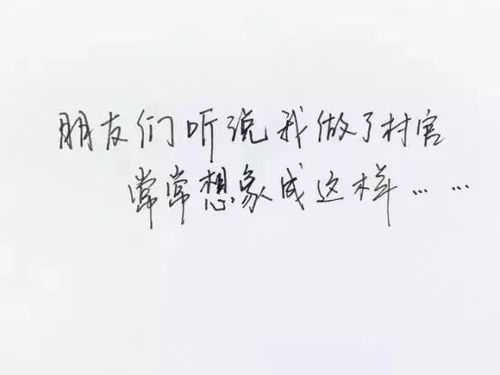 朋友们听说我做了村官
常常想象成这样……